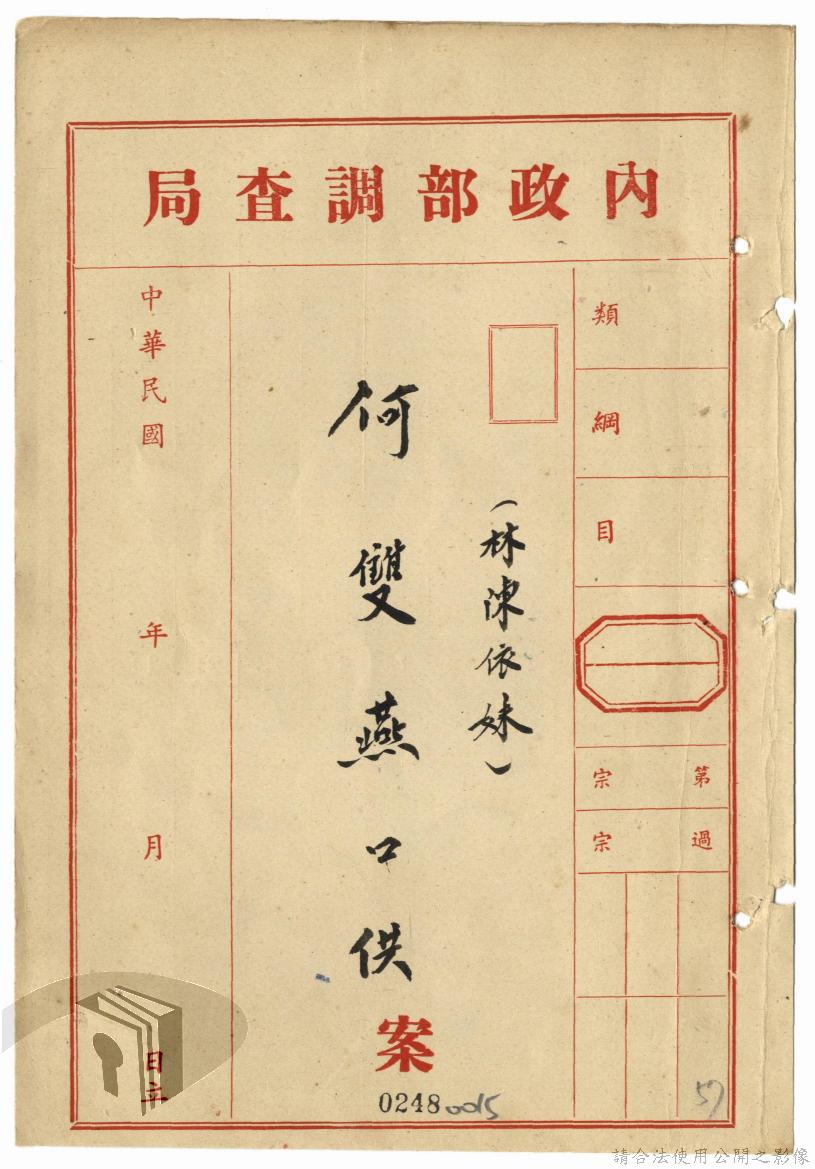 內政部調查局
類
綱
目
第 宗
過 宗
(林陳依妹)
何雙燕口供案
中華民國 年 月 日立
0248 0015
57
請合法使用公開之影像